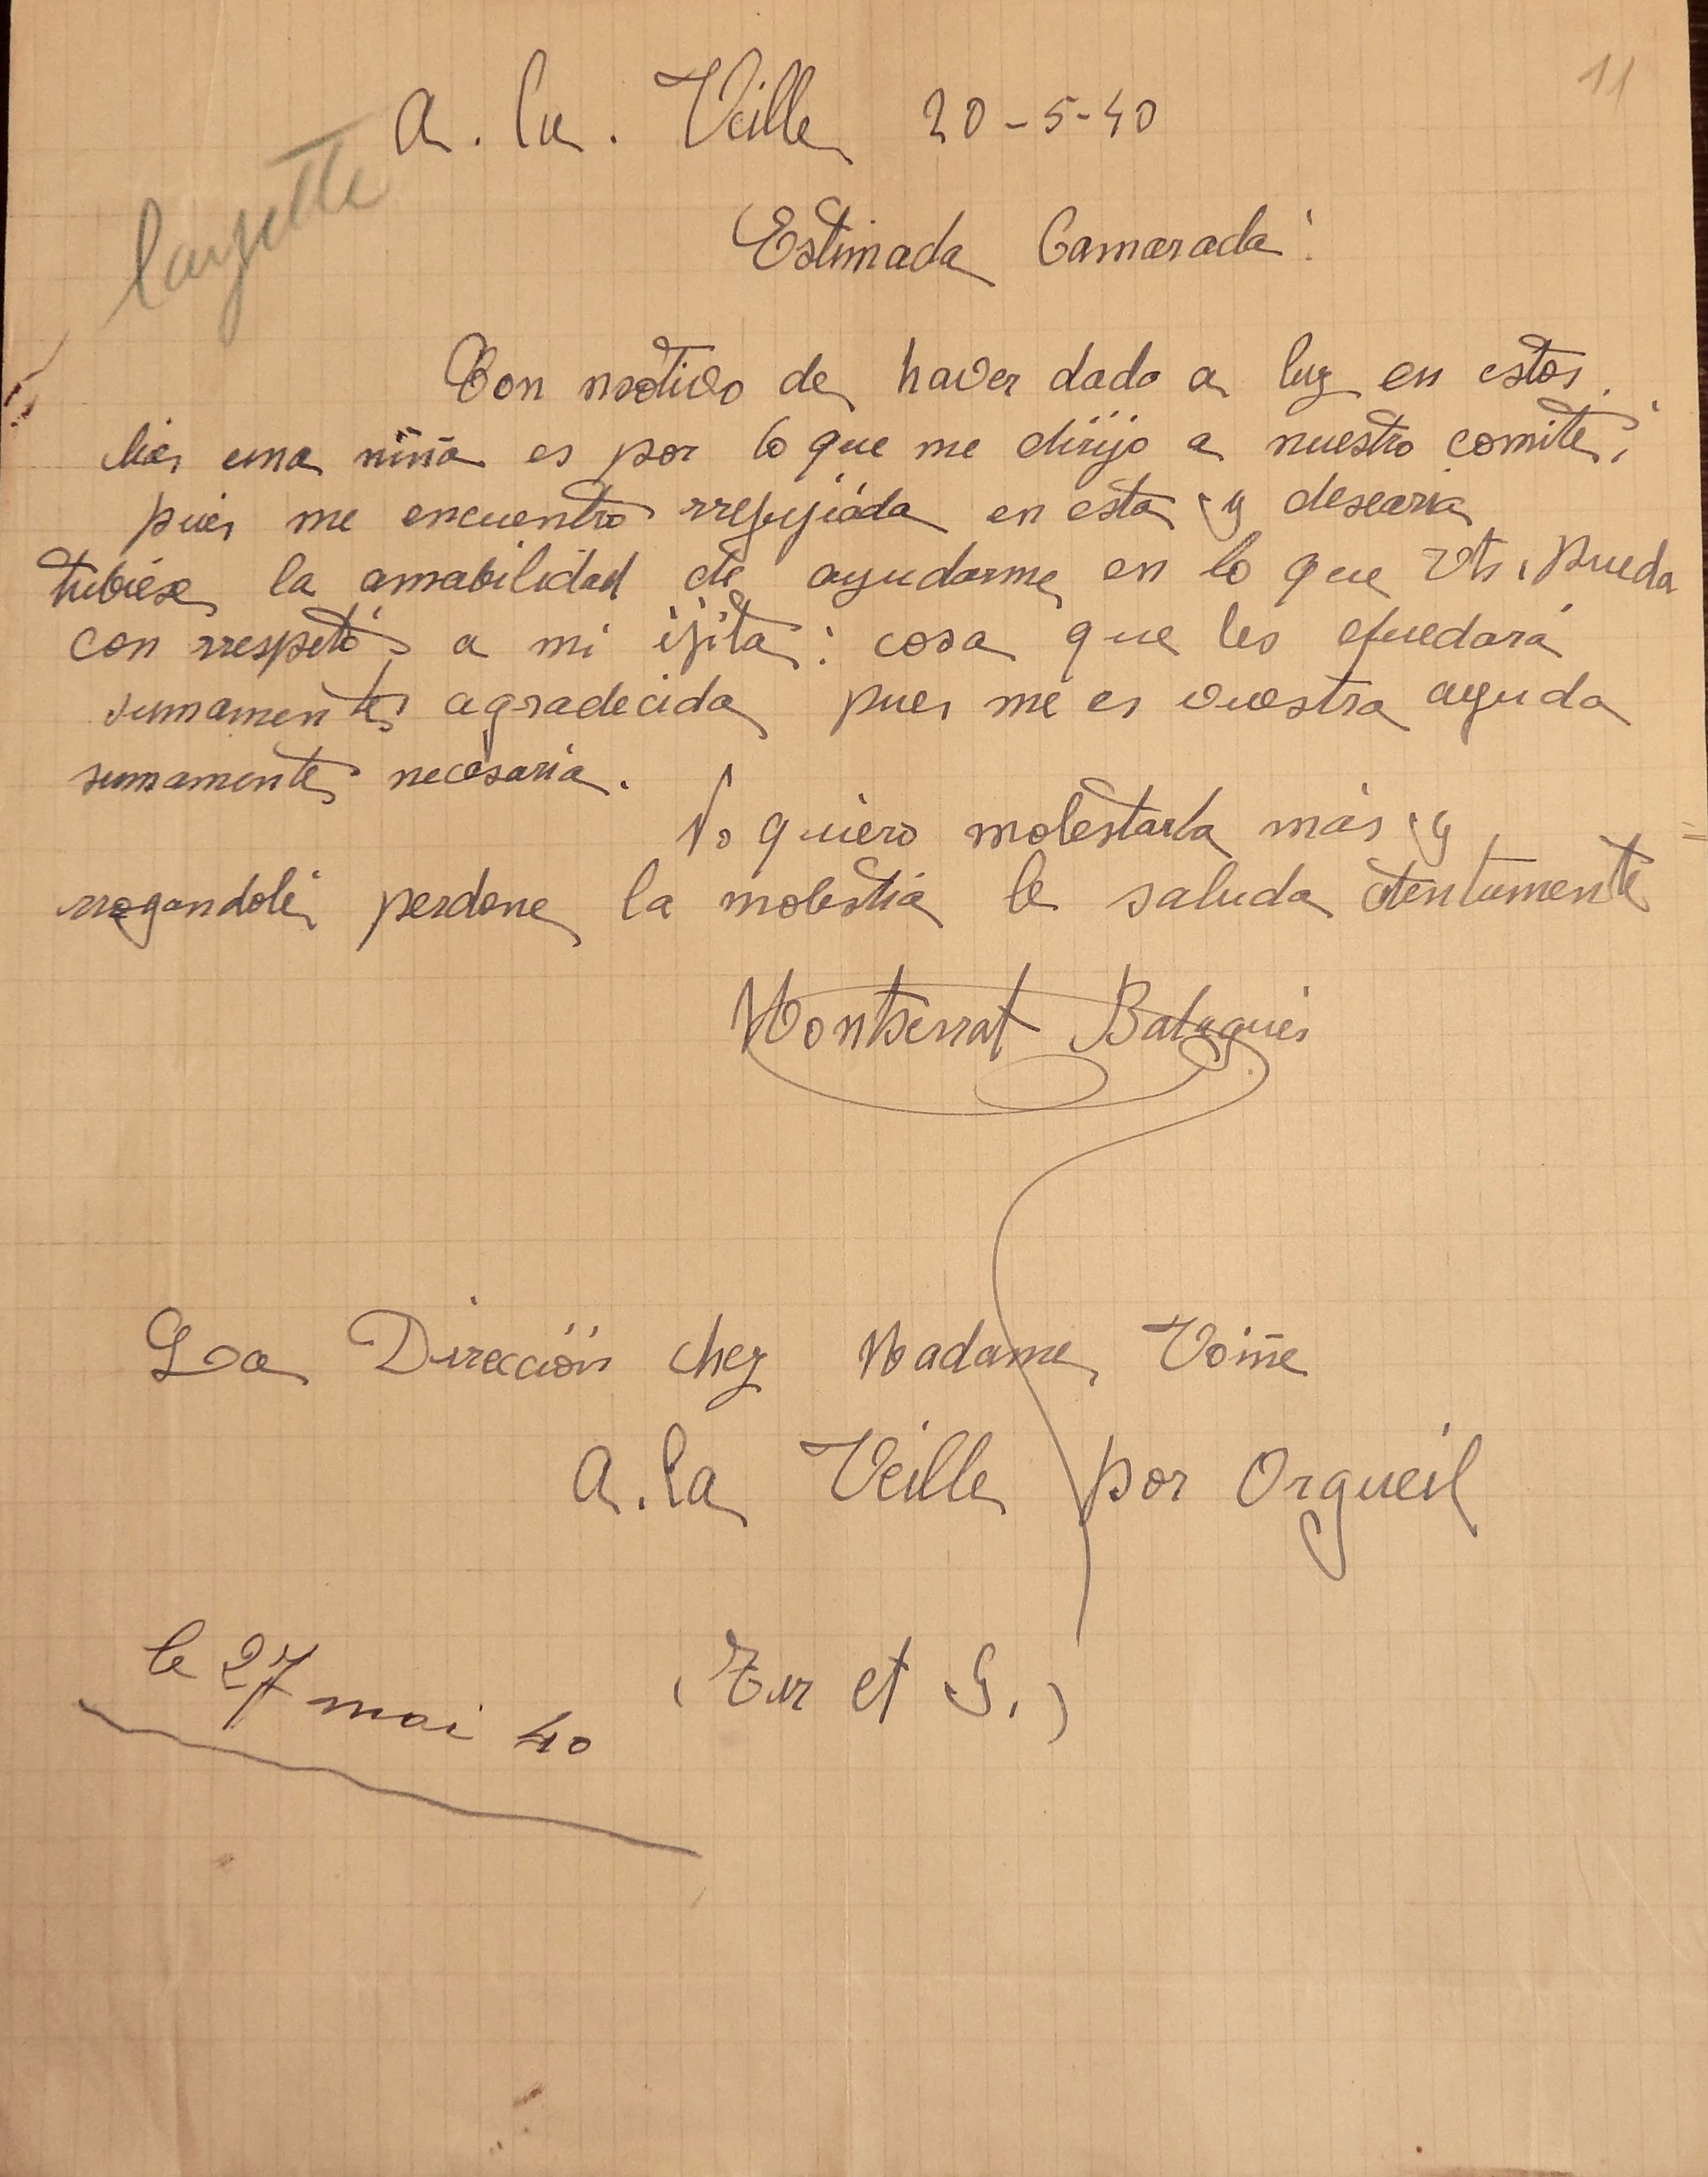 11
A. la. Veille 20-5-40
layette
Estimada Camarada:
Con motivo de haver dado a luz en estos
dias una niña es por lo que me dirijo a nuestro comite;
pues me encuentro rrefujiada en esta y desearia
tubiese la amabilidad de ayudarme en lo que Vts. pueda
con rrespeto a mi ijita: cosa que les quedará
sumamente agradecida pues me es vuestra ayuda
sumamente necesaria.
No quiero molestarla más y
rrogandole perdone la molestia le saluda atentamente
Montserrat Balagués
La Dirección chez Madame Voiñe
A. la Veille por Orgueil
(T. et G.)
le 27 mai 40